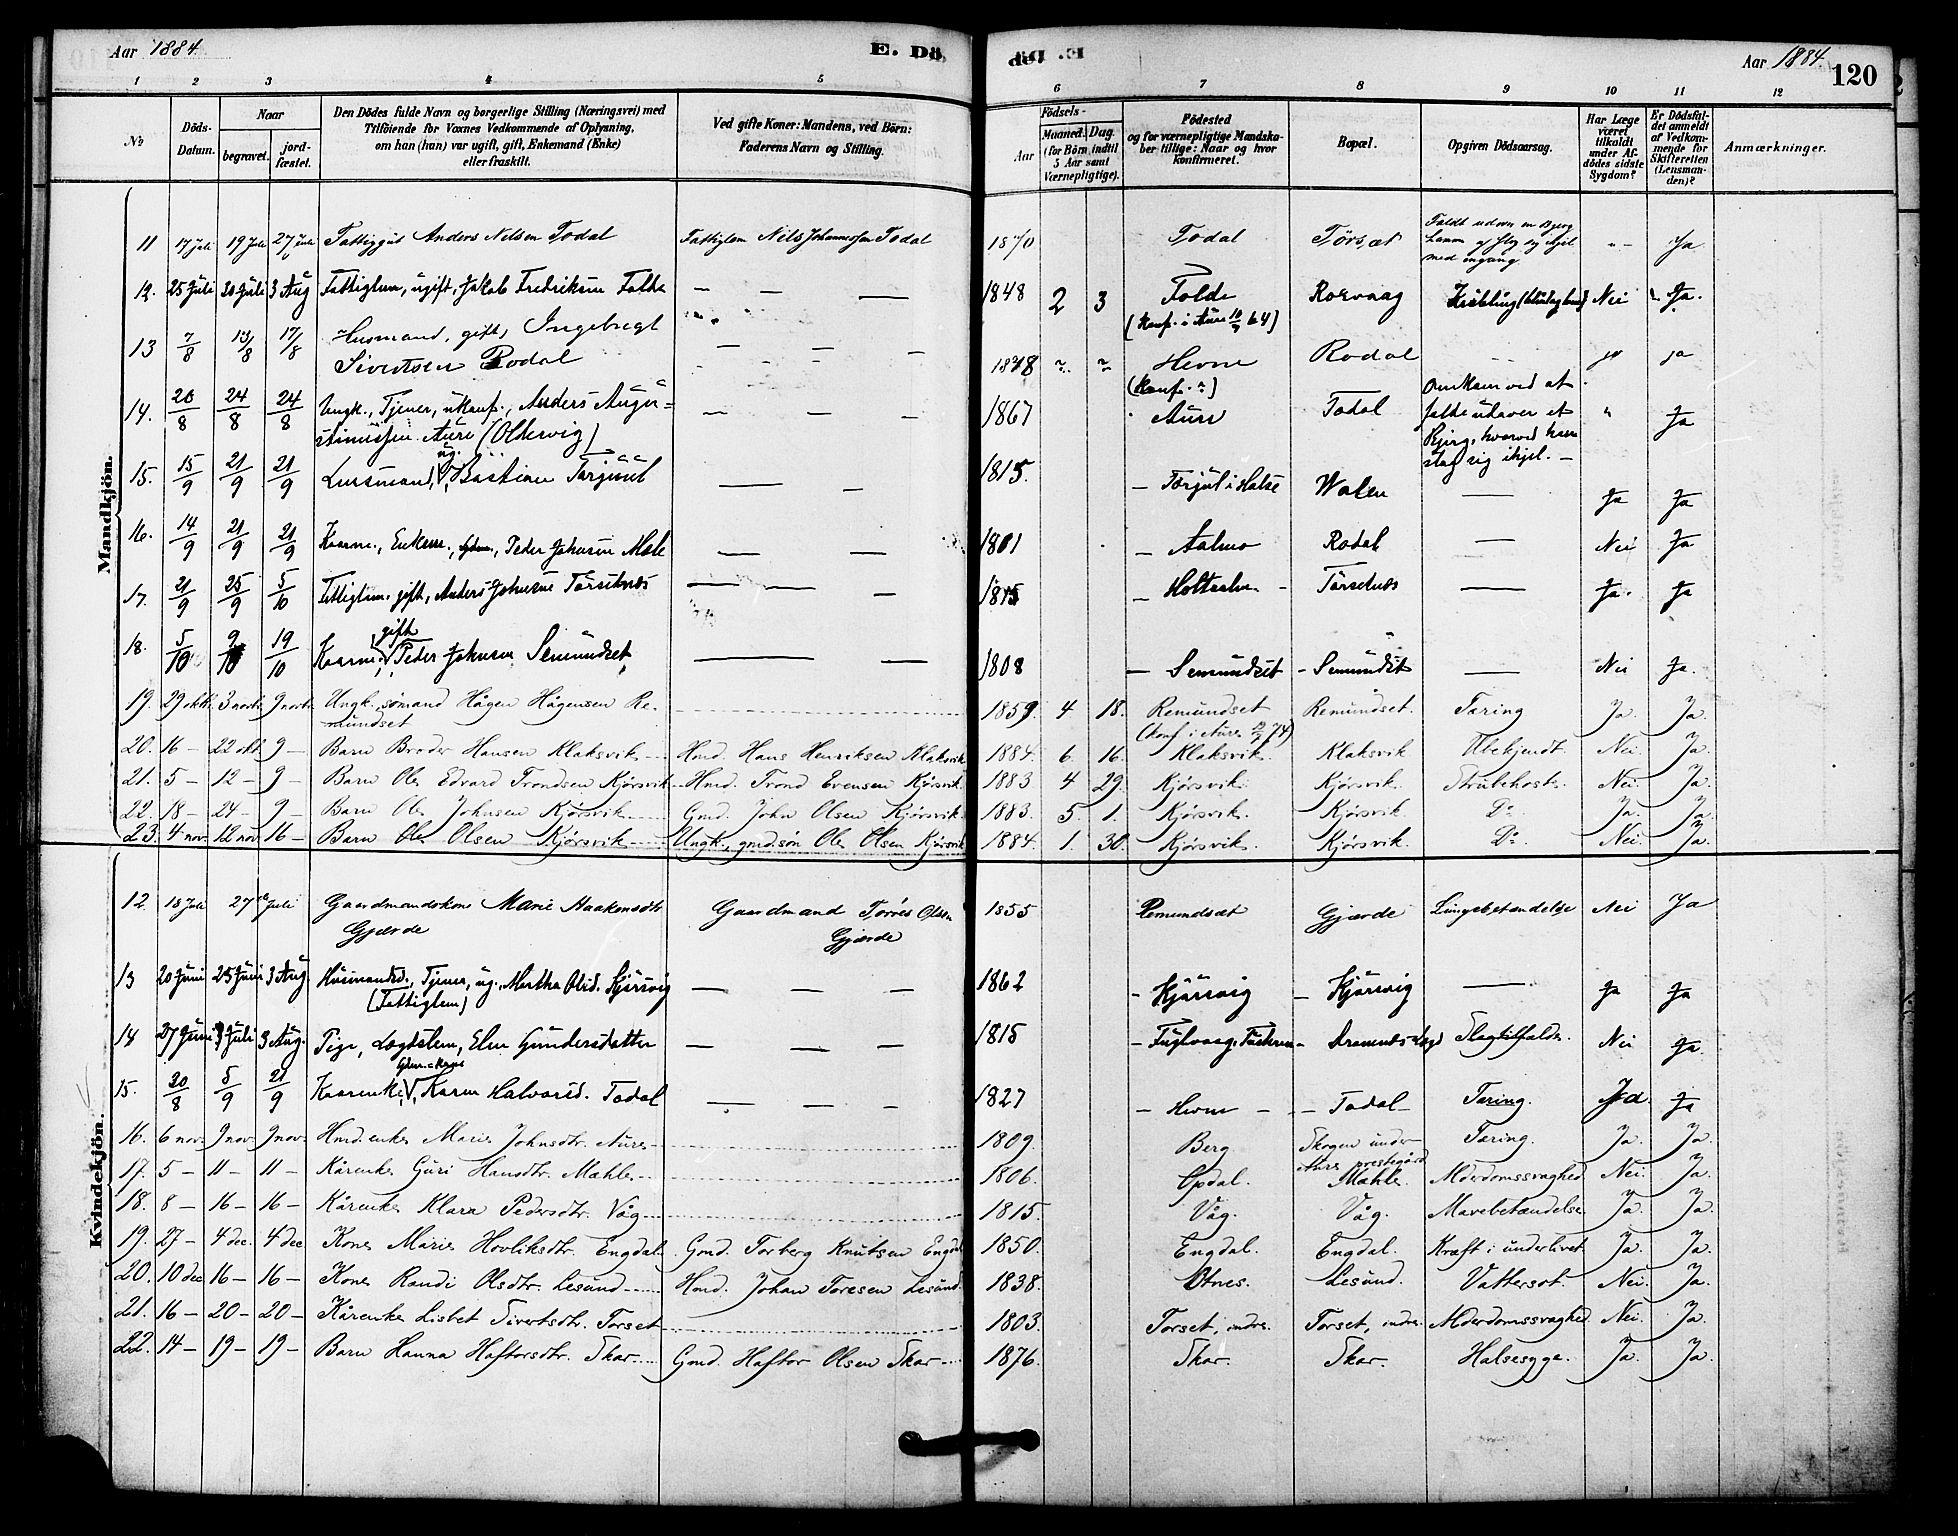 Aar 1884. E. Dö
1 2 3 4 5
No Döds-Datum. Naar begravet. jord-fæstet. Den Dödes fulde Navn og borgerlige Stilling (Næringsvei) med Tilföiende for Voxnes Vedkommende af Oplysning, om han (hun) var ugift, gift, Enkemand (Enke) eller fraskilt. Ved gifte Koner: Mandens, ved Börn: Faderens Navn og Stilling.
de. E. Aar 1884. 120
6 7 8 9 10 11 12
Födsels- Aar Maaned. Dag. (for Börn indtil 5 Aar samt Værnepligtige). Födested og for værnepligtige Mandskaber tillige: Naar og hvor konfirmeret. Bopæl. Opgiven Dödsaarsag. Har Læge været tilkaldt under Afdödes sidste Sygdom? Er Dödsfaldet anmeldt af Vedkommende for Skifteretten (Lensmanden)? Anmærkninger.
Mandkjön.
11 17 juli 19 Juli 27 juli Fattiggut Anders Nilsen Todal Fattiglem Nils Johannessen Todal 1870 Todal Törsæt Faldt udover en Bjerg med engang. Ja
12. 25 Juli 30 Juli 3 Aug Fattiglem, ugift, Jakob Fredriksen Folde — — — 1848 2 3 Folde Rosvaag Nei Ja.
(Konf. i Aure 10/7 64)
13 7/8 13/8 17/8 Husmand, gift, Ingebregt
Sivertsen Rodal — — — 1848 Hevne Rodal ja
(Konf. )
14. 20/8 24/8 24/8 Ungk., Tjener, ukonf., Anders Augu=
stinussen Aure (Oldervig) — — — 1867 Aure Todal Omkom ved at falde udover et Bjerg, hvorved han slog sig ihjel. — Ja
15. 15/9 21/9 21/9 ug. Bastian Torjul — — 1815. — Torjul i Halse Ja Ja
16. 14/9 21/9 21/9 Kaarm., Enkem., Peder Johnsen Mæle — — 1801 — Aalmo Rodal — Nei Ja
17. 21/9 25/9 5/10 Fattiglem. gift, Anders Johnsen Torsetnæs — — — 1815 — Torsetnæs — Ja. Ja
18. 5/10 9/10 19/10 Kaarm., gift Peder Johnsen Semundset — — 1808 — Semundset — Semundset — Nei Ja.
19. 29 okt. 3 novbr. 9 novbr. Ungk. sömand Hågen Hågensen Re-
mundset 1859. 4 18. Remundset Remundset. Tæring Ja. Ja.
(konf. i Aure 74)
20. 16 — 22 okt. 9 — Barn Broder Hansen Klaksvik Hmd. Hans Henriksen Klaksvik 1884. 6. 16. Klaksvik. Klaksvik Ubekjendt. Nei. Ja.
21. 5 — 12 — 9 — Barn Ole Edvard Trondsen Kjörsvik Hmd. Trond Evensen Kjörsvik 1883 4 29. Kjörsvik. Kjörsvik. Strubehoste. Nei. Ja.
22. 18 — 24 — 9 — Barn Ole Johnsen Kjörsvik Gmd. John Olsen Kjörsvik 1883. 5. 1. Kjörsvik. Kjörsvik. Do Ja. Ja.
23. 4 nov. 12 nov. 16 — Barn Ole Olsen Kjörsvik Ungk., gmd.sön Ole Olsen Kjörsvik 1884. 1. 30. Kjörsvik. Kjörsvik. Do Nei. Ja.
Kvindekjön.
12. 18 Juli 27 Juli Gaardmandskone Marie Haakonsdtr
Gjærde Gaardmand Torres Olsen
Gjærde 1855 Remundsæt Gjærde Lungebetændelse Nei Ja
13 20 Juni 25 Juni 3 Aug. Husmandsd., Tjener, ug., Martha Olsd. Kjörsvig
(Fattiglem) — — — 1862 — Kjörsvig — Kjörsvig — Ja Ja
14 27 Juni 3 Juli 3 Aug. Pige, Lægdslem, Elen Gundersdatter — — — 1815 — Fuglvaag, Tustern — Slagtilfælde. Nei Ja.
15. 30/8 5/9 21/9 Kaarenke, Karen Halvorsd. Todal — — — 1827 — Hevne — — Todal — Tæring. Ja. Ja
16. 6 nov. 9 nov. 9 nov. Hmd.enke Marie Johnsdtr. Aure 1809. Berg Skogen under Aure prestegård Tæring. Ja. Ja.
17. 5 — 11 — 11 — Kårenke Guri Hansdtr. Mæhle 1806. Opdal. Mæhle. Alderdomssvaghed Nei. Ja.
18. 8 — 16 — 16 — Kårenke Klara Pedersdtr. Våg 1815. Våg. Våg. Mavebetændelse Ja. Ja.
19. 27 — 4 dec. 4 dec. Kone Marie Hovliksdtr. Engdal Gmd. Torberg Knutsen Engdal 1850. Engdal. Engdal. Kræft i underlivet Ja. Ja.
20. 10 dec 16 — 16 — Kone Randi Olsdtr. Lesund Hmd. Johan Toresen Lesund 1838. Otnes. Lesund. Vattersot. Nei. Ja.
21. 16 — 20 — 20 — Kårenke Lisbet Sivertsdtr. Torset 1803. Torset, indre. Torset, indre. Alderdomssvaghed. Nei. Ja.
22. 14 — 19 — 19 — Barn Hanna Haftorsdtr. Skar Gmd. Haftor Olsen Skar 1876. Skar. Skar. Halsesyge. Ja. Ja.